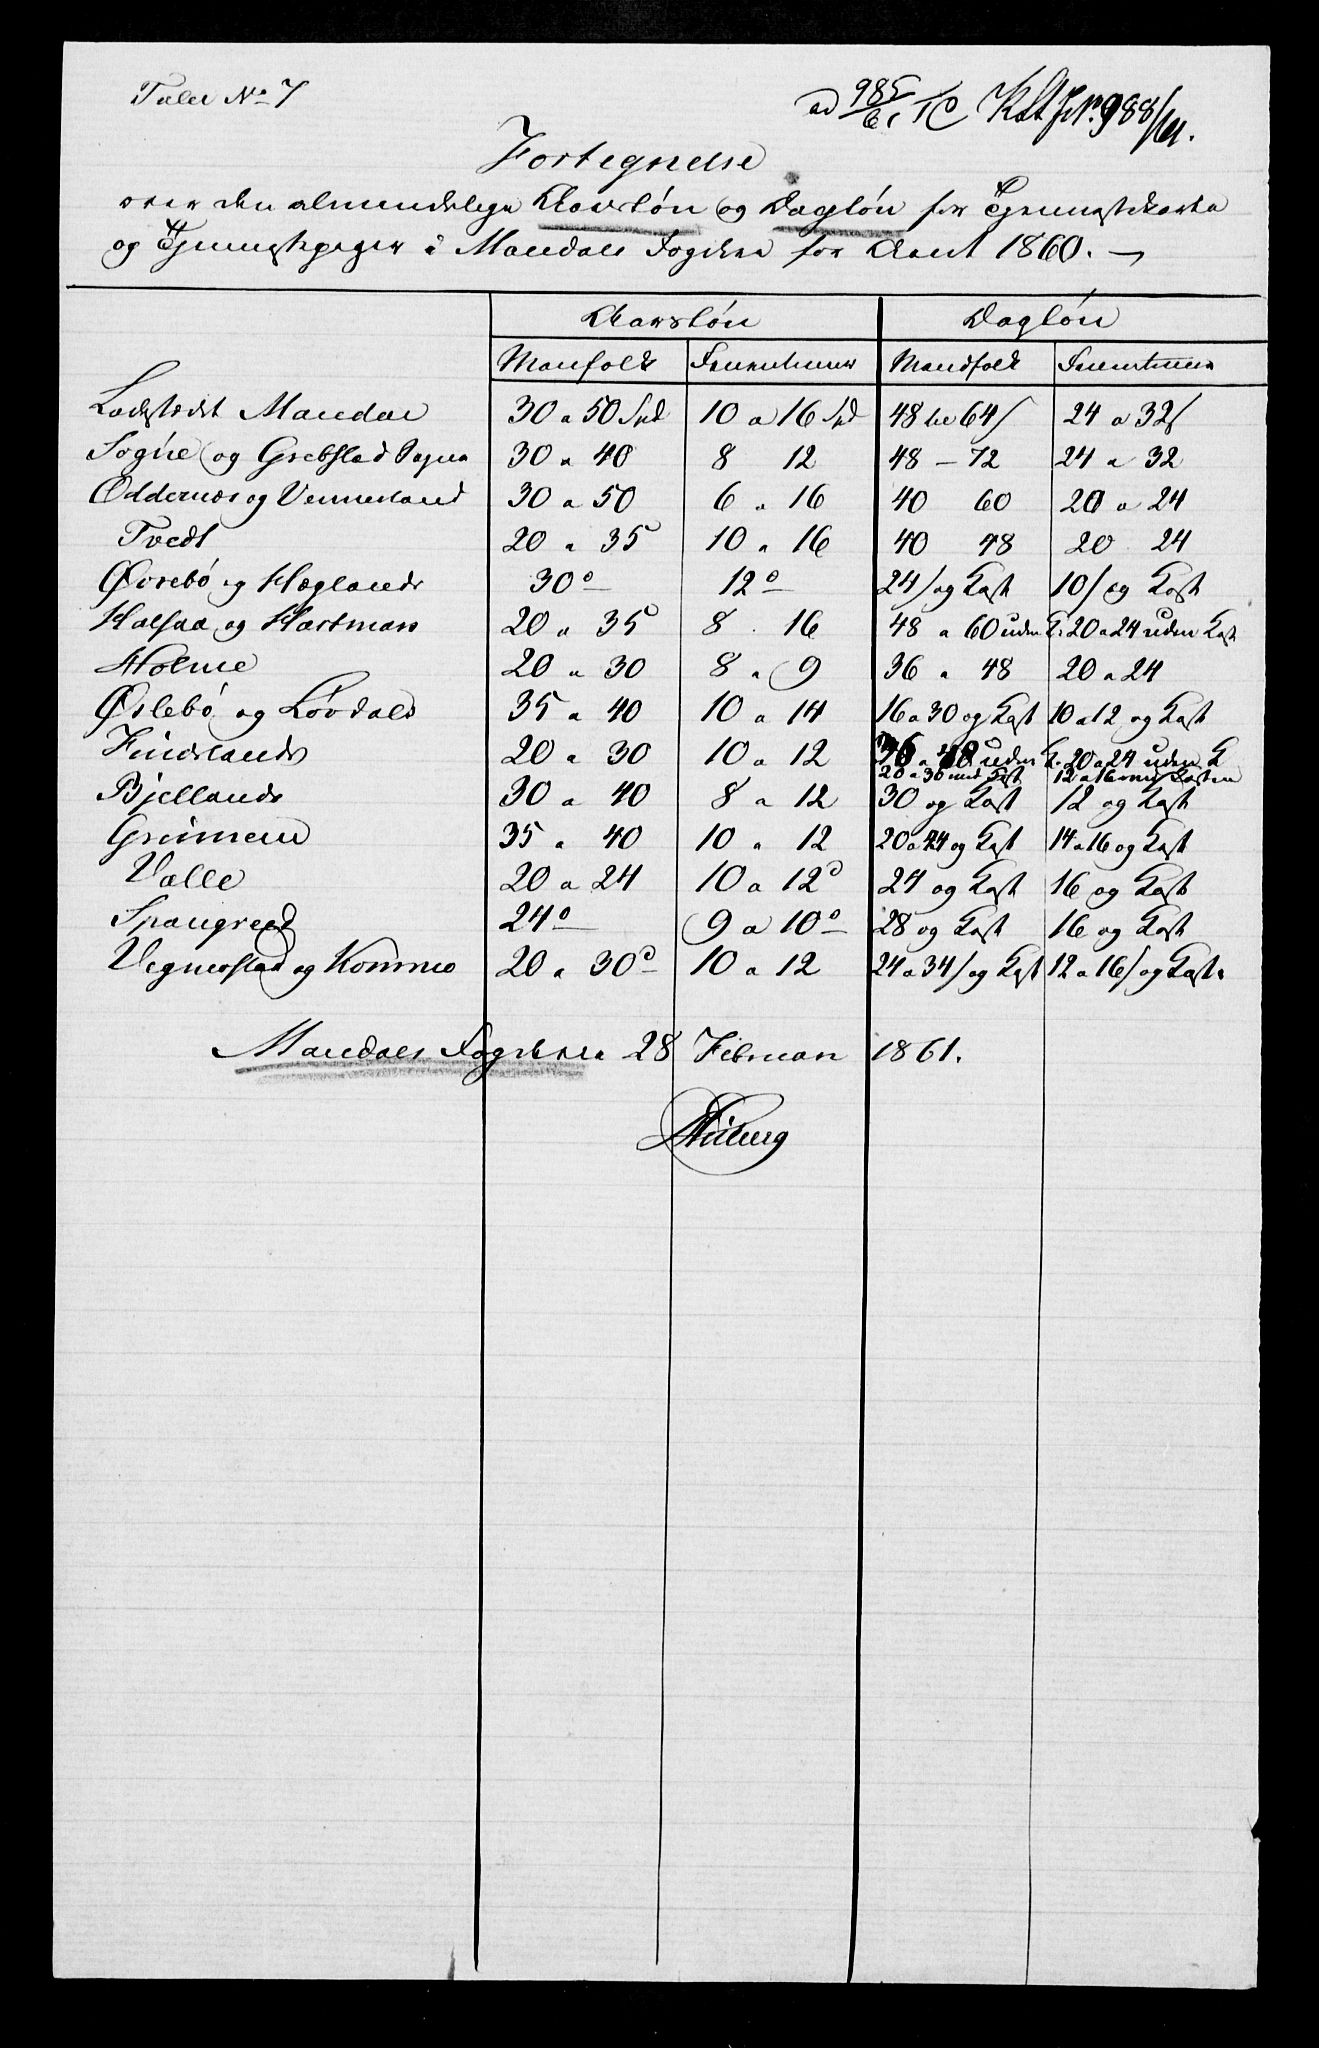 Tabel No 7
ad 985/61 K
Fortegnelse
over den almindelige Aarsløn og Dagløn for Tjenestekarle
og Tjenestepiger i Mandals Fogderi for Aaret 1860. —
Aarsløn Dagløn
Manfolk Fruentimer Mandfolk Fruentimer
Ladestedet Mandal 30 a 50 Spd 10 a 16 Spd 48 til 64 ſ 24 a 32 ſ
Søgne og Grebstad Sogne 30 a 40 8 12 48 – 72 24 a 32
Oddernæs og Vennesland 30 a 50 6 a 16 40 60 20 a 24
Tvedt 20 a 35 10 a 16 40 48 20 24
Øvrebø og Hæglands 30 12 24 ſ og Kost 10 ſ og Kost
Halsaa og Hartmark 20 a 35 8 . 16 48 a 60 uden K. 20 a 24 uden Kost
Holme 20 a 30 8 a 9 36 a 48 20 a 24
Øslebø og Løvdals 35 a 40 10 a 14 16 a 30 og Kost 10 a 12 og Kost
Finslands 20 a 30 10 a 12 36 a 48 uden K. 20 a 24 uden K
20 a 30 med Kost 12 a 16 med Kosten
Bjellands 30 a 40 8 a 12 30 og Kost 12 og Kost
Grinnem 35 a 40 10 a 12 20 a 24 og Kost 14 a 16 og Kost
Valle 20 a 24 10 a 12 24 og Kost 16 og Kost
Spangreid 24 9 a 10 28 og Kost 16 og Kost
Vigmostad og Konsmo 20 a 30 10 a 12 24 a 34 ſ og Kost 12 a 16 ſ og Kost
Mandals Fogderi 28 Februar 1861.